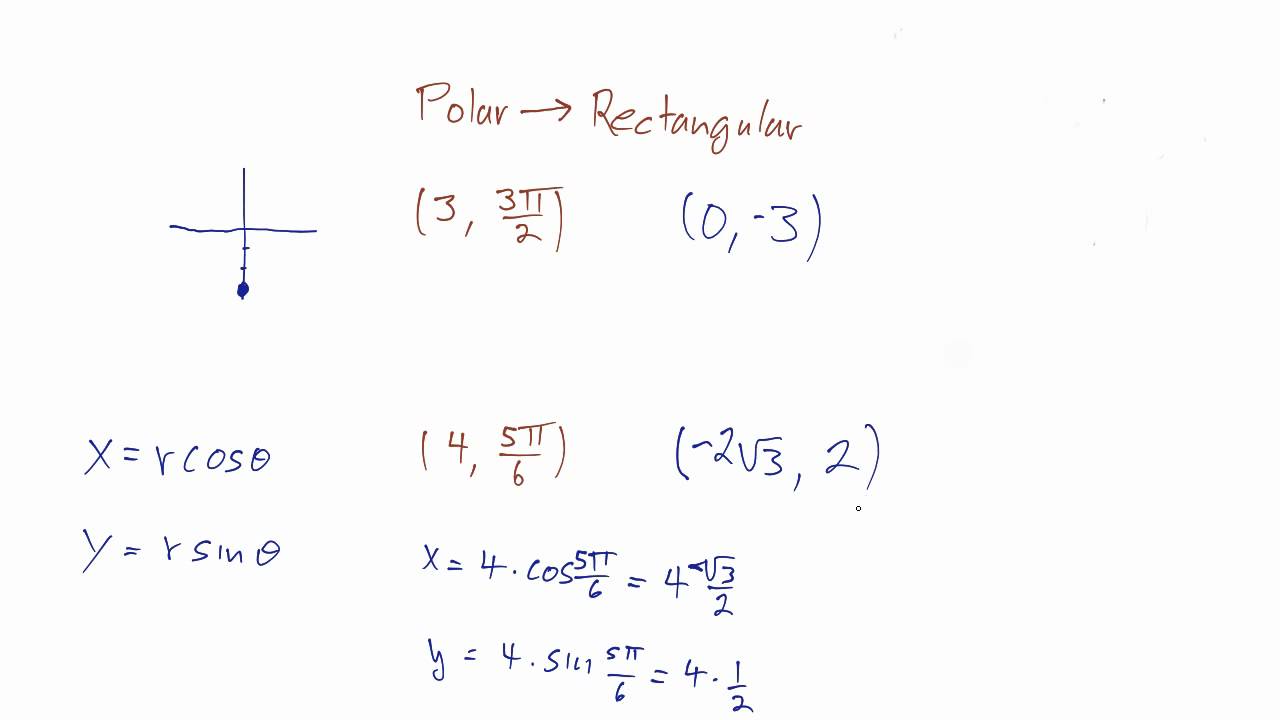 Polar → Rectangular
(3, 3π/2) (0, -3)
x = r cos θ (4, 5π/6) (-2√3, 2)
y = r sin θ
x = 4 · cos 5π/6 = 4 · -√3/2
y = 4 · sin 5π/6 = 4 · 1/2